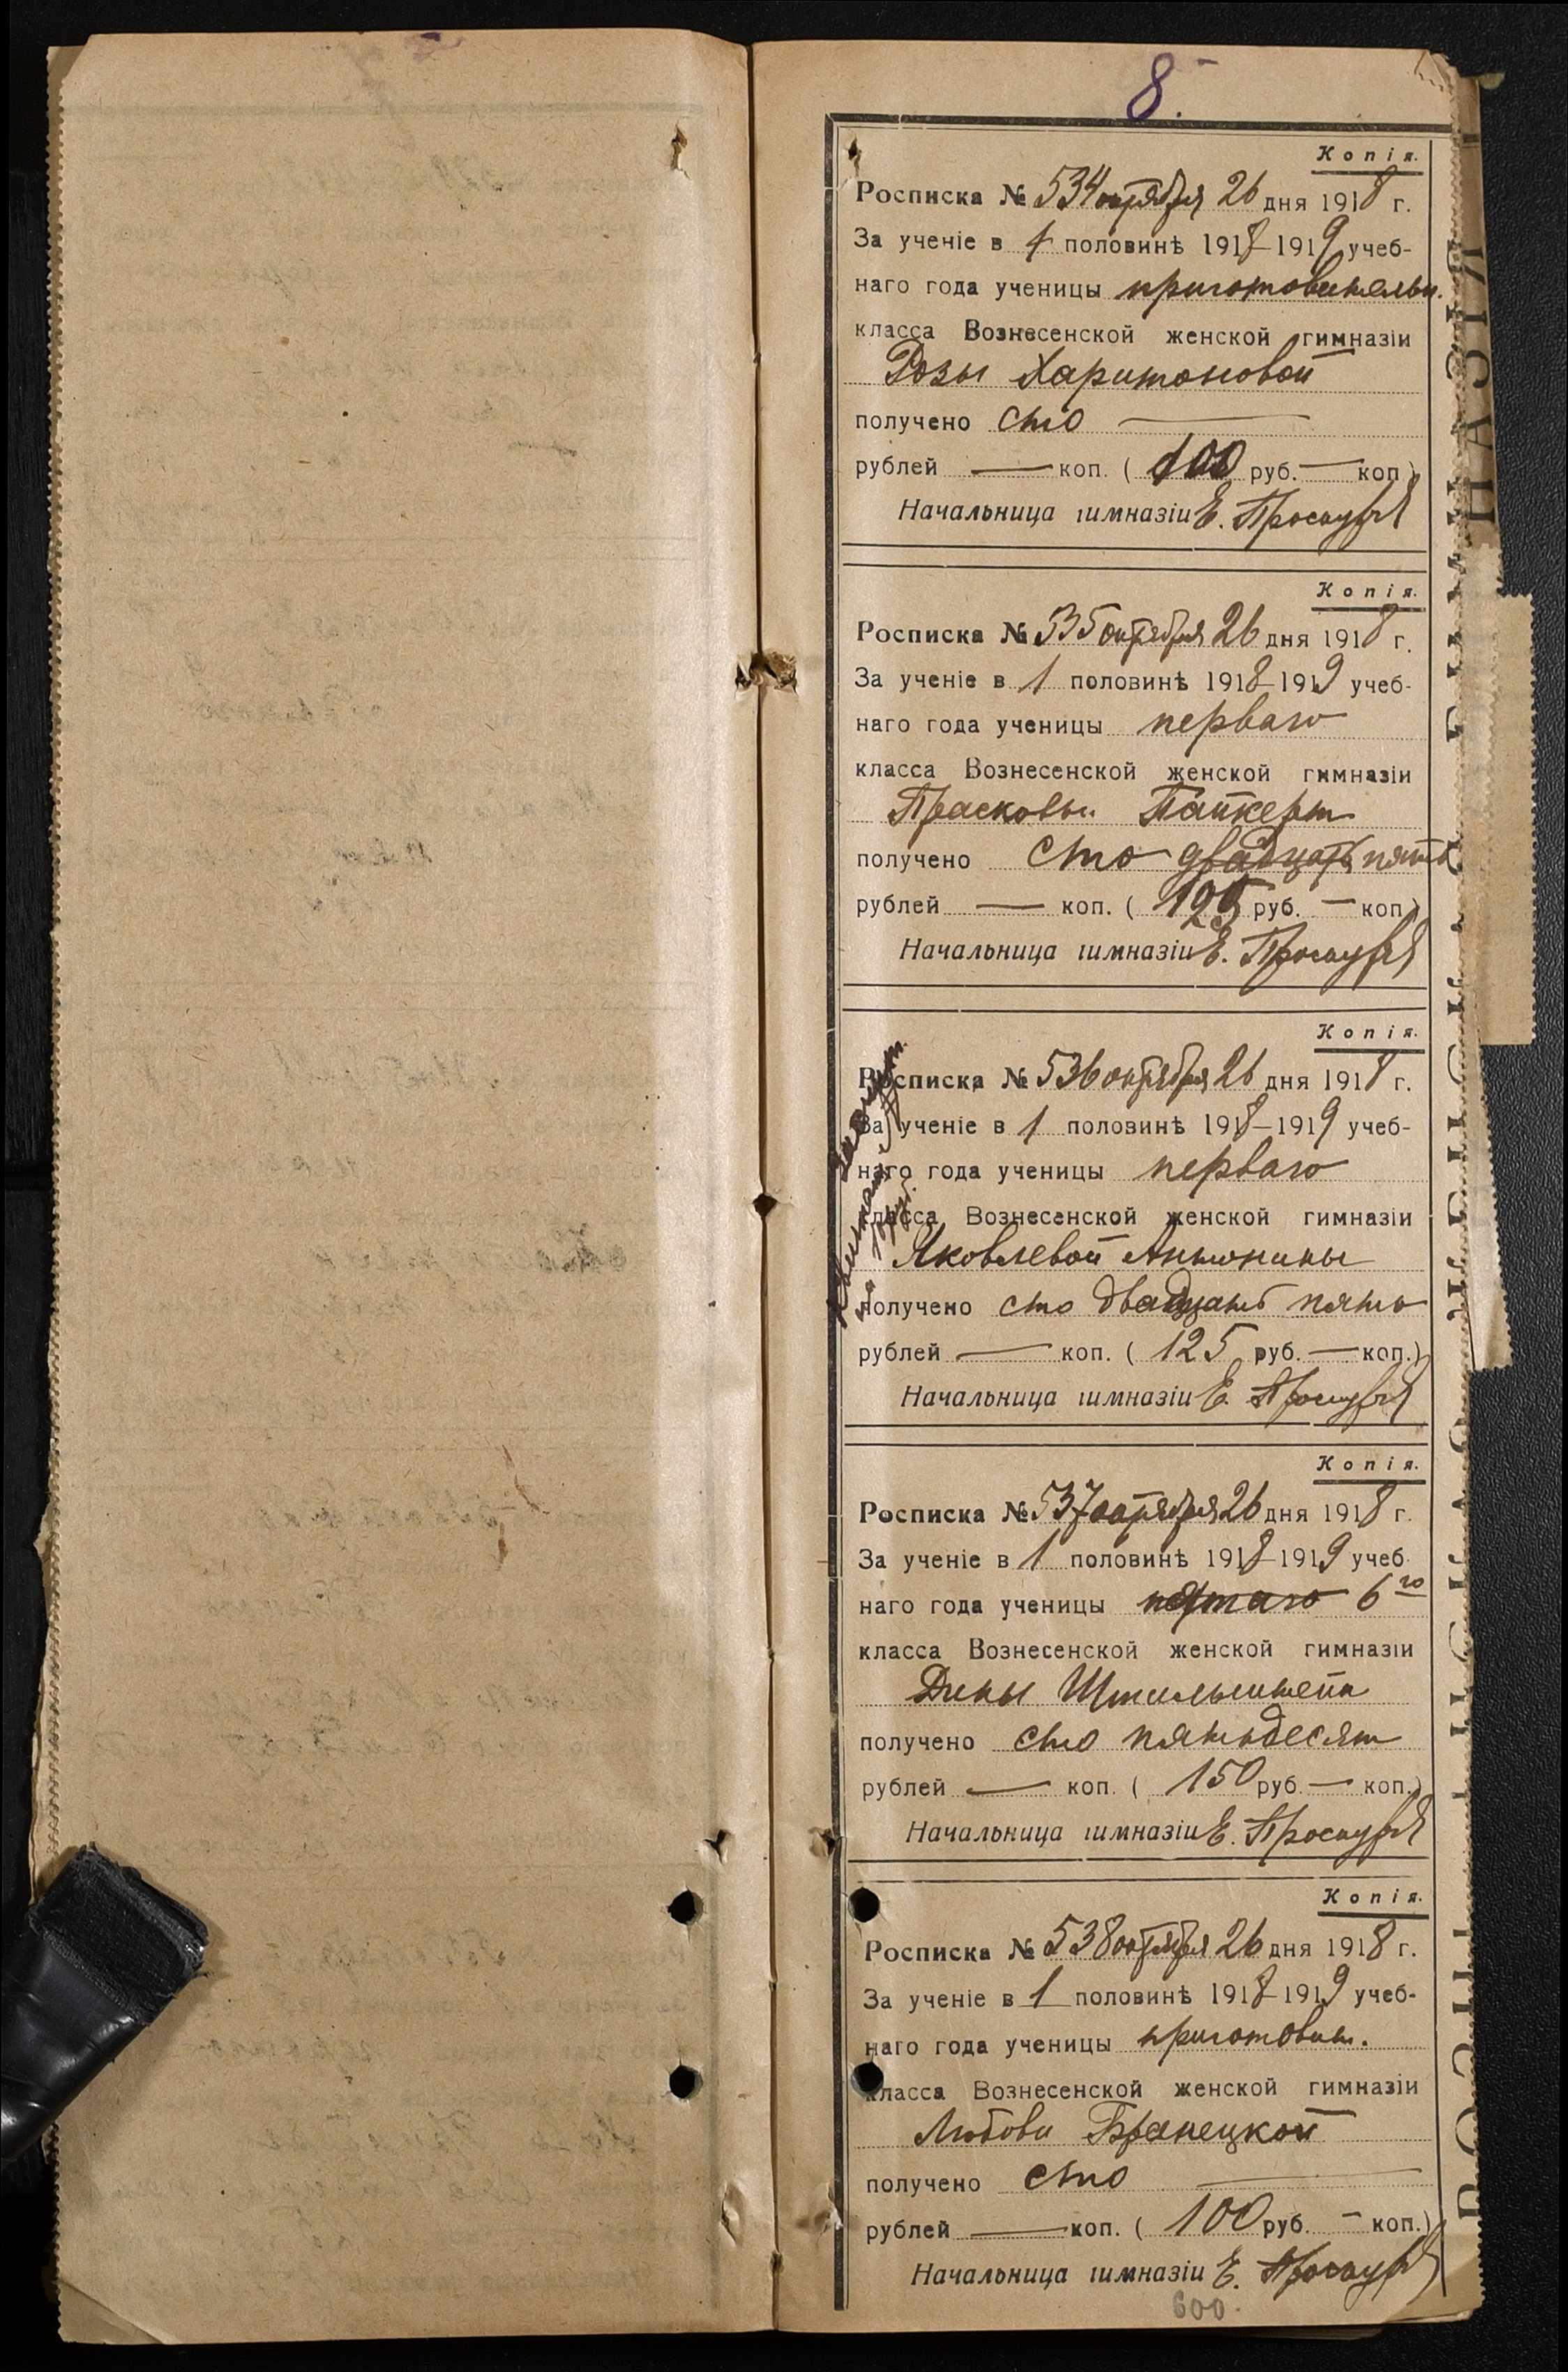 8.
Копія.
Росписка № 534 октября 26 дня 1918 г.
За ученіе в 1 половинѣ 1918–1919 учеб-
наго года ученицы приготовительн.
класса Вознесенской женской гимназіи
Розы Харитоновой
получено сто —
рублей — коп. ( 100 руб. — коп.)
Начальница гимназіи Е.
Копія.
Росписка № 535 октября 26 дня 1918 г.
За ученіе в 1 половинѣ 1918–1919 учеб-
наго года ученицы перваго
класса Вознесенской женской гимназіи
Прасковьи
получено сто двадцать пять
рублей — коп. ( 125 руб. — коп.)
Начальница гимназіи Е.
Копія.
Росписка № 536 октября 26 дня 1918 г.
За ученіе в 1 половинѣ 1918–1919 учеб-
наго года ученицы перваго
класса Вознесенской женской гимназіи
Яковлевой Антонины
получено сто двадцать пять
рублей — коп. ( 125 руб. — коп.)
Начальница гимназіи Е.
Копія.
Росписка № 537 октября 26 дня 1918 г.
За ученіе в 1 половинѣ 1918–1919 учеб
наго года ученицы 6го
класса Вознесенской женской гимназіи
Дины Штильштейн
получено сто пятьдесят
рублей — коп. ( 150 руб. — коп.)
Начальница гимназіи Е.
Копія.
Росписка № 538 октября 26 дня 1918 г.
За ученіе в 1 половинѣ 1918–1919 учеб-
наго года ученицы приготовит.
класса Вознесенской женской гимназіи
Любови Бранецкой
получено сто —
рублей — коп. ( 100 руб. — коп.)
Начальница гимназіи Е.
600.